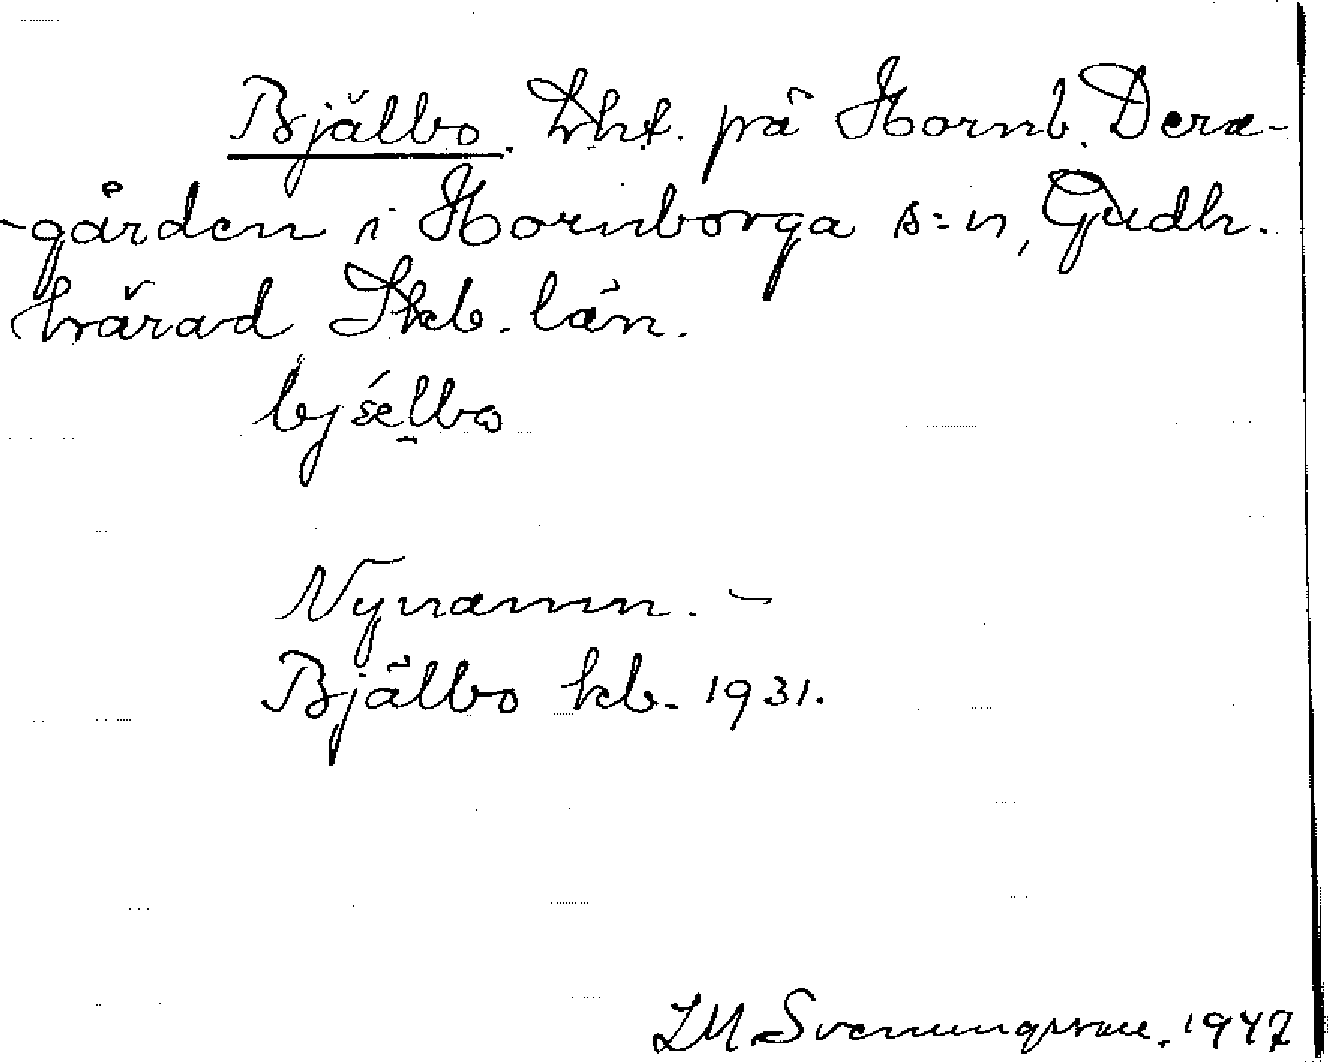 Bjälbo. Lht. på Hornb. Dera-
-gården i Hornborga s:n, Gudh.
härad Skb. län.
bjælbo
Nynamn. –
Bjälbo kb. 1931.
L M Svenungsson. 1947